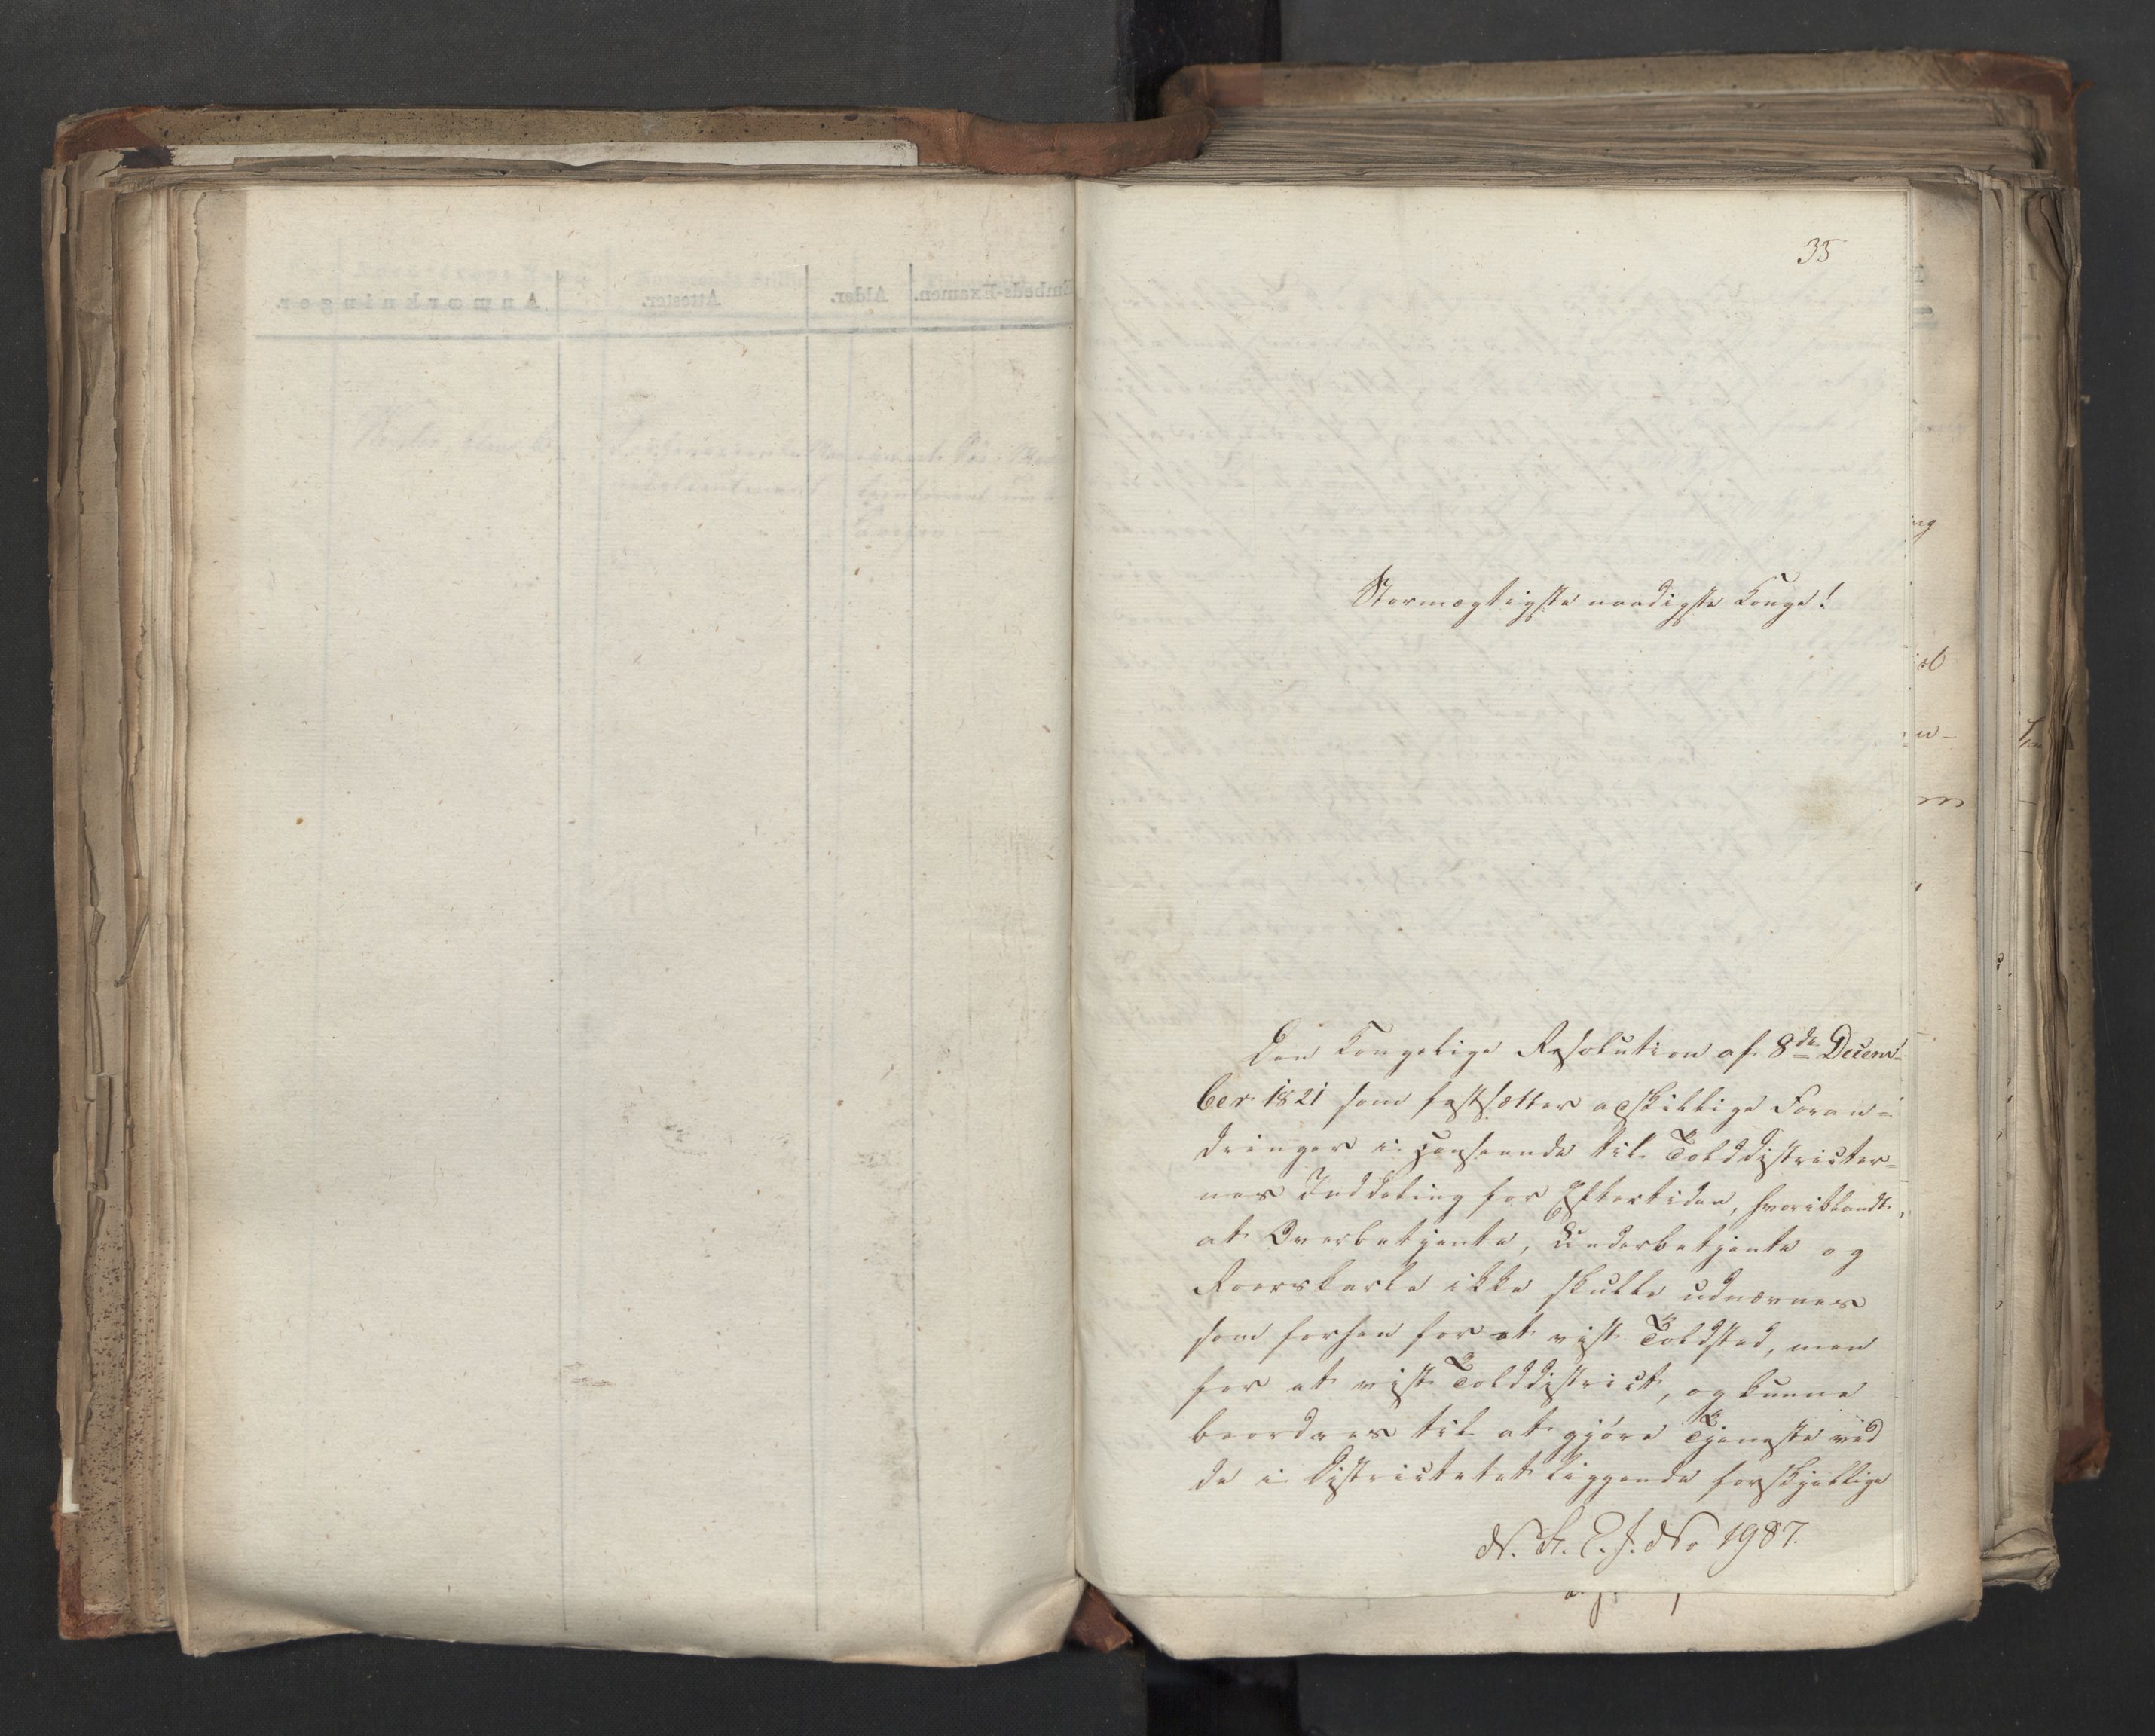 35
Stormægtigste naadigste Konge!
Den Kongelige Resolution af 8de Decem-
ber 1821 som fastsætter adskillige Foran-
dringer i Henseende til Tolddistricter-
nes Inddeling for Eftertiden, hvoriblandt,
at Overbetjente, Underbetjente og
Roerskarle ikke skulle udnævnes
som forhen for et vist Toldsted, men
for et vist Tolddistrict, og kunne
beordres til at gjøre Tjeneste ved
de i Districtet liggende forskjellige
No 1987.
Embeds-Examen.
Alder.
Attester.
Anmærkninger.